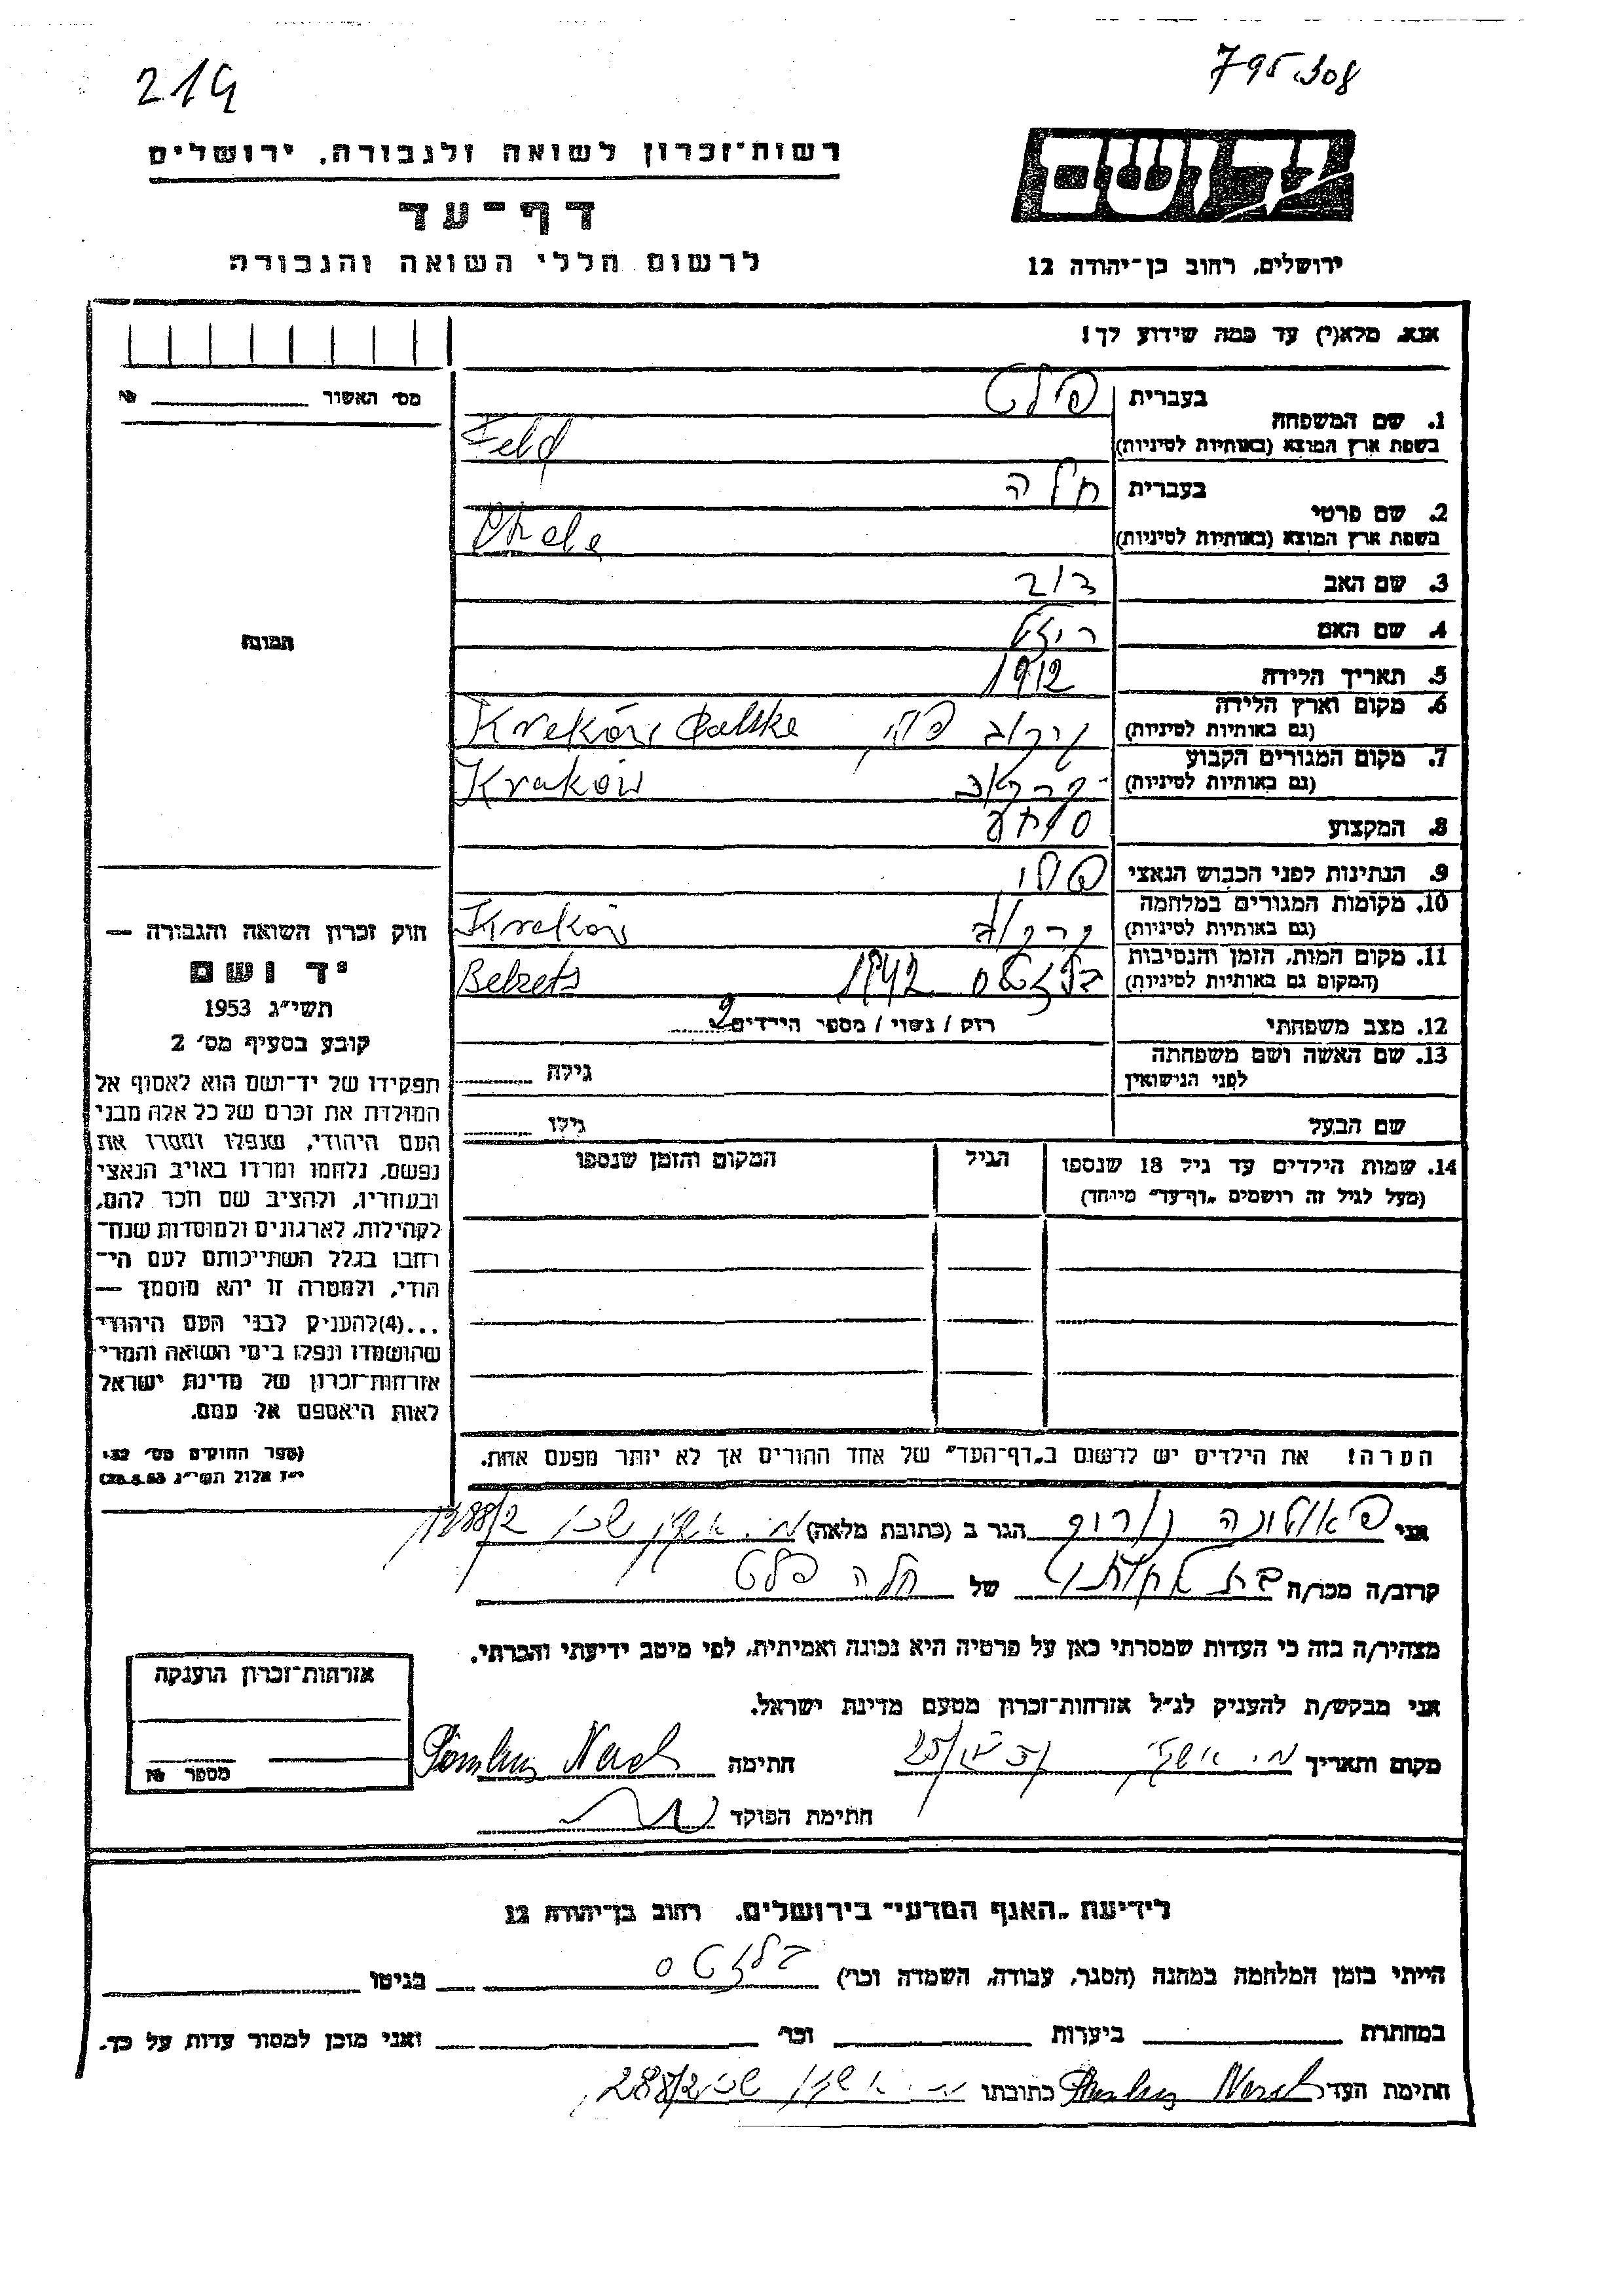 219
795.308
רשות־זכרון לשואה ולגבורה, ירושלים
דף־עד
לרשום חללי השואה והגבורה
יד ושם
ירושלים, רחוב בן־יהודה 12
אנא, מלא(י) עד כמה שידוע לך!
מס׳ האשור № 
תמונה
1. שם המשפחה
בעברית פלט
בשפת ארץ המוצא (באותיות לטיניות) Feld
2. שם פרטי
בעברית חלה
בשפת ארץ המוצא (באותיות לטיניות) Chale
3. שם האב דוב
4. שם האם רייזל
5. תאריך הלידה 1912
6. מקום וארץ הלידה
(גם באותיות לטיניות) Kraków Polske
7. מקום המגורים הקבוע
(גם באותיות לטיניות) קרקוב Kraków
8. המקצוע סוחר
9. הנתינות לפני הכבוש הנאצי פולני
10. מקומות המגורים במלחמה
(גם באותיות לטיניות) קרקוב Kraków
11. מקום המות, הזמן והנסיבות
(המקום גם באותיות לטיניות) בלזטס 1942 Belzets
12. מצב משפחתי רוק / נשוי / מספר הילדים 2
13. שם האשה ושם משפחתה
לפני הנישואין
גילה
שם הבעל גילו
14. שמות הילדים עד גיל 18 שנספו הגיל המקום והזמן שנספו
(מעל לגיל זה רושמים „דף־עד” מיוחד)
הערה! את הילדים יש לרשום ב„דף־העד” של אחד ההורים אך לא יותר מפעם אחת.
חוק זכרון השואה והגבורה —
יד ושם
תשי״ג 1953
קובע בסעיף מס׳ 2
תפקידו של יד־ושם הוא לאסוף אל
המולדת את זכרם של כל אלה מבני
העם היהודי, שנפלו ומסרו את
נפשם, נלחמו ומרדו באויב הנאצי
ובעוזריו, ולהציב שם וזכר להם,
לקהילות, לארגונים ולמוסדות שנח־
רבו בגלל השתייכותם לעם הי־
הודי, ולמטרה זו יהא מוסמך —
...(4) להעניק לבני העם היהודי
שהושמדו ונפלו בימי השואה והמרי
אזרחות־זכרון של מדינת ישראל
לאות היאספם אל עמם.
(ספר החוקים מס׳ 132,
י״ז אלול תשי״ג 28.8.53)
אני הגר ב (כתובת מלאה) 288/2
קרוב/ה מכר/ה של חלה פלט
מצהיר/ה בזה כי העדות שמסרתי כאן על פרטיה היא נכונה ואמיתית, לפי מיטב ידיעתי והכרתי.
אני מבקש/ת להעניק לנ״ל אזרחות־זכרון מטעם מדינת ישראל.
מקום ותאריך חתימה
חתימת הפוקד
אזרחות־זכרון הוענקה
מספר №
לידיעת „האגף המדעי” בירושלים, רחוב בן־יהודה 12
הייתי בזמן המלחמה במחנה (הסגר, עבודה, השמדה וכו׳) בלזטס בגיטו
במחתרת ביערות וכו׳ ואני מוכן למסור עדות על כך.
חתימת העד כתובתו 288/2